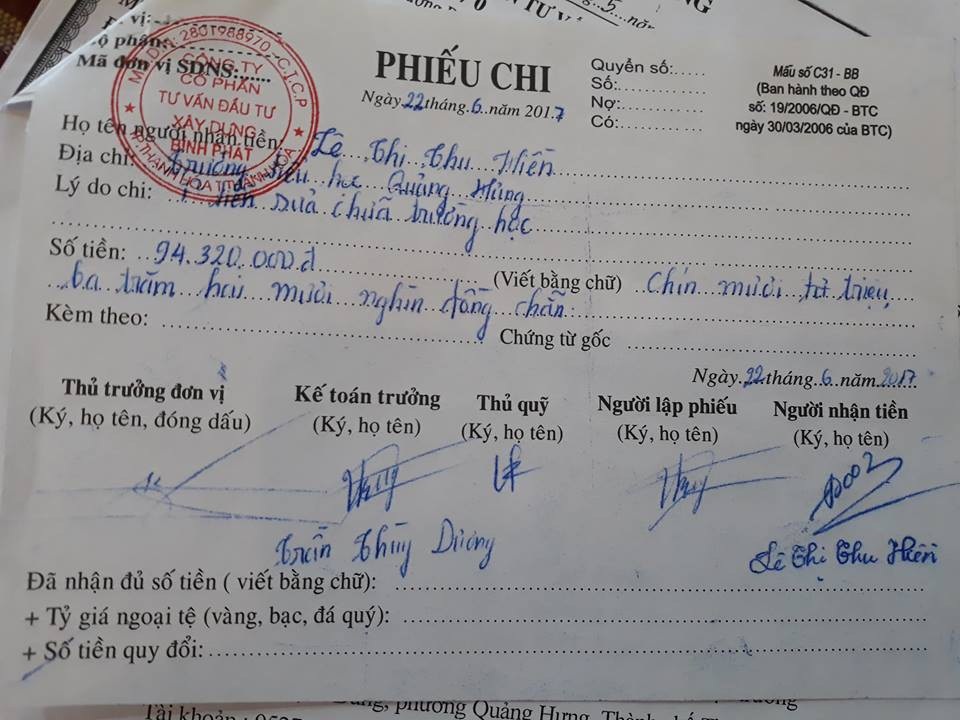 PHIẾU CHI
Ngày 22 tháng 6 năm 2017
Quyển số:.....
Số:.............
Nợ:............
Có:............
Mẫu số C31 - BB
(Ban hành theo QĐ
số: 19/2006/QĐ - BTC
ngày 30/03/2006 của BTC)
Mã đơn vị SDNS:......
2801988970 - C.T.C.P
CÔNG TY
CỔ PHẦN
TƯ VẤN ĐẦU TƯ
XÂY DỰNG
BÌNH PHÁT
Họ tên người nhận tiền: Lê Thị Thu Hiền
Địa chỉ: Trường tiểu học Quảng Hưng
Lý do chi: tiền sửa chữa trường học
Số tiền: 94.320.000đ (Viết bằng chữ) Chín mươi tư triệu
ba trăm hai mươi nghìn đồng chẵn.
Kèm theo: Chứng từ gốc
Ngày 22 tháng 6 năm 2017
Thủ trưởng đơn vị Kế toán trưởng Thủ quỹ Người lập phiếu Người nhận tiền
(Ký, họ tên, đóng dấu) (Ký, họ tên) (Ký, họ tên) (Ký, họ tên) (Ký, họ tên)
Trần Thùy Dương Lê Thị Thu Hiền
Đã nhận đủ số tiền ( viết bằng chữ):
+ Tỷ giá ngoại tệ (vàng, bạc, đá quý):
+ Số tiền quy đổi:
phường Quảng Hưng, Thành
Tài khoản